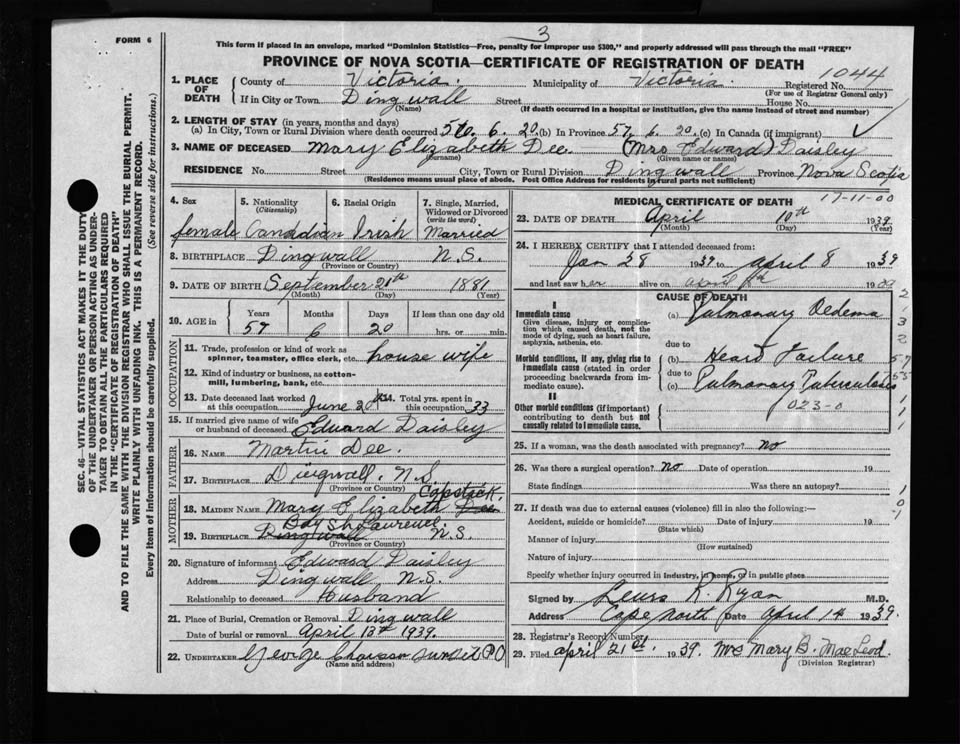 3
FORM 6
This form if placed in an envelope, marked "Dominion Statistics—Free, penalty for improper use $300," and properly addressed will pass through the mail "FREE"
PROVINCE OF NOVA SCOTIA—CERTIFICATE OF REGISTRATION OF DEATH
1044
1. PLACE OF DEATH County of Victoria. Municipality of Victoria. Registered No.
(For use of Registrar General only)
If in City or Town Dingwall Street House No.
(Name) (If death occurred in a hospital or institution, give the name instead of street and number)
2. LENGTH OF STAY (in years, months and days)
(a) In City, Town or Rural Division where death occurred 57 6. 20. (b) In Province 57. 6. 20. (c) In Canada (if immigrant)
3. NAME OF DECEASED Mary Elizabeth Dee. (Mrs Edward) Daisley
(Surname) (Given name or names)
RESIDENCE No. Street City, Town or Rural Division Dingwall Province Nova Scotia
(Residence means usual place of abode. Post Office Address for residents in rural parts not sufficient)
4. Sex 5. Nationality (Citizenship) 6. Racial Origin 7. Single, Married, Widowed or Divorced (write the word)
female Canadian Irish Married
8. BIRTHPLACE Dingwall N.S.
(Province or Country)
9. DATE OF BIRTH September 21th 1881
(Month) (Day) (Year)
10. AGE in Years Months Days If less than one day old
57 6 20 hrs. or min.
OCCUPATION
11. Trade, profession or kind of work as spinner, teamster, office clerk, etc. house wife
12. Kind of industry or business, as cotton-mill, lumbering, bank, etc.
13. Date deceased last worked at this occupation June 20th 14. Total yrs. spent in this occupation 33
15. If married give name of wife or husband of deceased Edward Daisley
FATHER
16. NAME Martin Dee.
17. BIRTHPLACE Dingwall, N.S
(Province or Country)
MOTHER
Capstick.
18. MAIDEN NAME Mary Elizabeth Dee
Bay St. Laurence.
19. BIRTHPLACE Dingwall N.S.
(Province or Country)
20. Signature of informant Edward Daisley
Address Dingwall, N.S.
Relationship to deceased Husband
21. Place of Burial, Cremation or Removal Dingwall
Date of burial or removal April 13th 1939.
22. UNDERTAKER George Sunset P.O
(Name and address)
MEDICAL CERTIFICATE OF DEATH 17-11-00
23. DATE OF DEATH April 10th 1939
(Month) (Day) (Year)
24. I HEREBY CERTIFY that I attended deceased from:
Jan 28 1939 to April 8 1939
and last saw her alive on April 8th 19
CAUSE OF DEATH
I
Immediate cause
Give disease, injury or complication which caused death, not the mode of dying, such as heart failure, asphyxia, asthenia, etc.
(a) Pulmonary Oedema
due to
Morbid conditions, if any, giving rise to immediate cause (stated in order proceeding backwards from immediate cause).
(b) Heart Failure
due to
(c) Pulmonary Tuberculosis
II
023-0
Other morbid conditions (if important) contributing to death but not causally related to immediate cause.
25. If a woman, was the death associated with pregnancy? no
26. Was there a surgical operation? no Date of operation 19
State findings Was there an autopsy?
27. If death was due to external causes (violence) fill in also the following:—
Accident, suicide or homicide? Date of injury 19
(State which)
Manner of injury
(How sustained)
Nature of injury
Specify whether injury occurred in industry, in home, or in public place
Signed by Lewis R. Ryan M.D.
Address Cape North Date April 14 1939.
28. Registrar's Record Number
29. Filed April 21st. 1939. Mrs Mary B. MacLeod
(Division Registrar)
SEC. 46—VITAL STATISTICS ACT MAKES IT THE DUTY
OF THE UNDERTAKER OR PERSON ACTING AS UNDER-
TAKER TO OBTAIN ALL THE PARTICULARS REQUIRED
IN THE "CERTIFICATE OF REGISTRATION OF DEATH"
AND TO FILE THE SAME WITH THE DIVISION REGISTRAR WHO SHALL ISSUE THE BURIAL PERMIT.
WRITE PLAINLY WITH UNFADING INK. THIS IS A PERMANENT RECORD.
Every item of information should be carefully supplied. (See reverse side for instructions.)